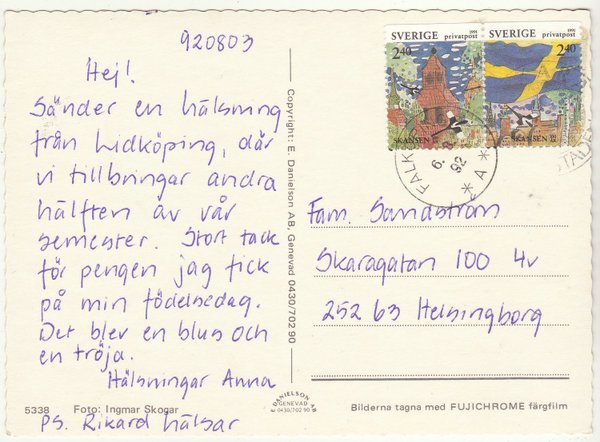 920803
Hej!
Sänder en hälsning
från Lidköping, där
vi tillbringar andra
hälften av vår
semester. Stort tack
för pengen jag fick
på min födelsedag.
Det blev en blus och
en tröja.
Hälsningar Anna
PS. Rikard hälsar
5338 Foto: Ingmar Skogar
Copyright: E. Danielson AB, Genevad 0430/702 90
DANIELSON AB
GENEVAD
0430/702 90
SVERIGE
1991
privatpost
2.40
SKANSEN
SVERIGE
1991
privatpost
2.40
SKANSEN
FALK
6. 8
92
* A *
Fam. Sandström
Skaragatan 100 4v
252 63 Helsingborg
Bilderna tagna med FUJICHROME färgfilm